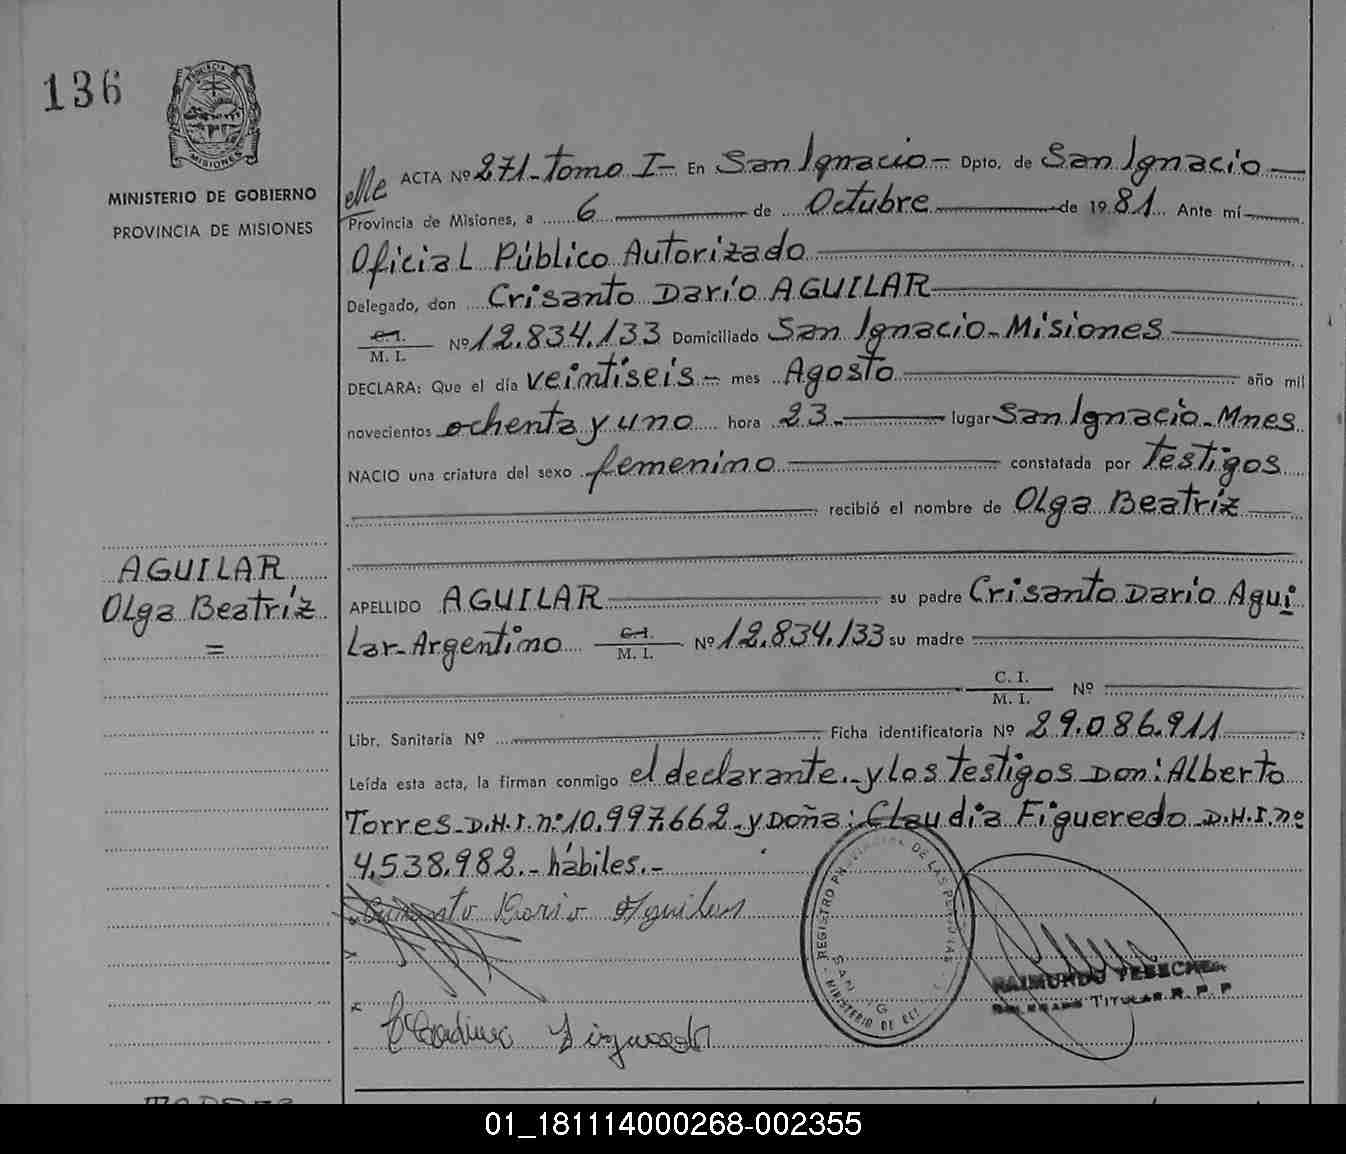 136
PROVINCIA
MISIONES
MINISTERIO DE GOBIERNO
PROVINCIA DE MISIONES
ACTA Nº 271-Tomo I- En San Ignacio- Dpto. de San Ignacio
Provincia de Misiones, a 6 de Octubre de 1981 Ante mí
Oficial Público Autorizado
Delegado, don Crisanto Darío AGUILAR
C.I.
M. I. Nº 12.834.133 Domiciliado San Ignacio-Misiones
DECLARA: Que el día veintiseis- mes Agosto año mil
novecientos ochenta y uno hora 23.- lugar San Ignacio-Mnes
NACIO una criatura del sexo femenino constatada por testigos
recibió el nombre de Olga Beatríz
AGUILAR
Olga Beatríz
=
APELLIDO AGUILAR su padre Crisanto Darío Agui
lar-Argentino C.I. M. I. Nº 12.834.133 su madre
C. I.
M. I. Nº
Libr. Sanitaria Nº Ficha identificatoria Nº 29.086.911
Leída esta acta, la firman conmigo el declarante.-y los testigos Don: Alberto
Torres-D.N.I.nº 10.997.662-y Doña: Claudia Figueredo D.N.I.nº
4.538.982.-hábiles.-
Dario Aguilar
REGISTRO PROVINCIAL DE LAS PERSONAS
MINISTERIO DE
RAIMUNDO
DELEGADO TITULAR R. P. P
Figueredo
01_181114000268-002355